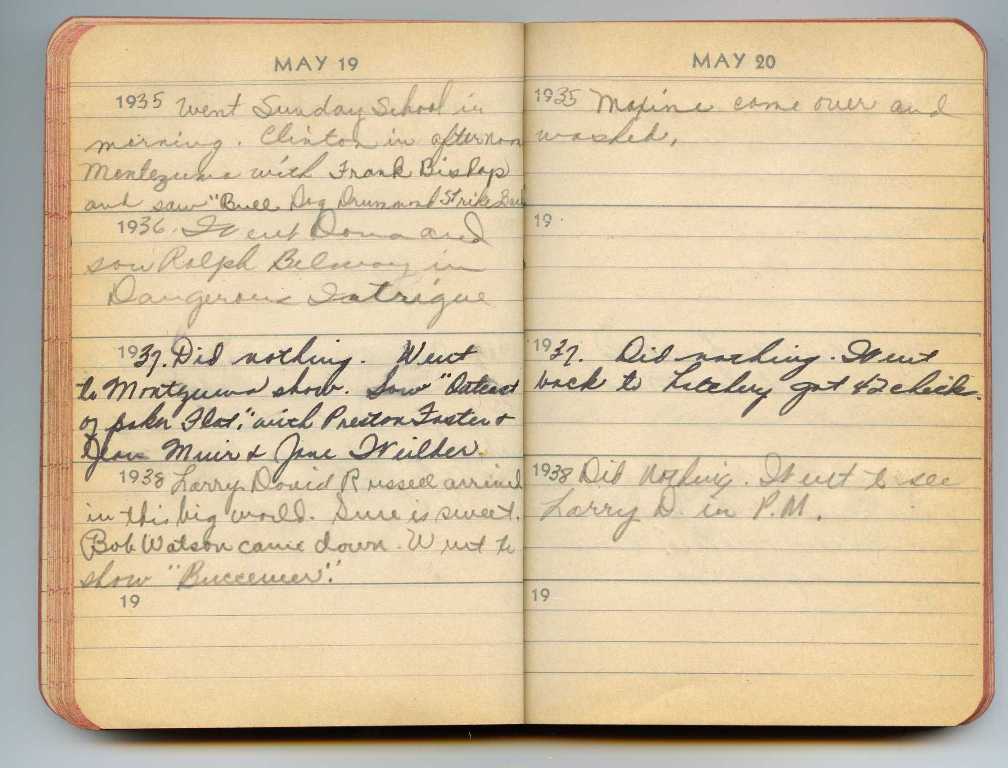 MAY 19
1935 Went Sunday School in
morning. Clinton in afternoon
Montezuma with Frank Bishop
and saw "Bull Dog Drummond Strike Back
1936. Went Dona and
saw Ralph Belamy in
Dangerous Intrigue
1937. Did nothing. Went
to Montzuma show. Saw "Outcast
of poker Flat." with Preston Foster &
Jean Muir & Jane
1938 Larry David Russell arrived
in this big world. Sure is sweet.
Bob Watson came down. Went to
show "Bucceneer".
19
MAY 20
1935 Maxine come over and
washed.
19
1937. Did nothing. Went
back to hatchery got 42 chicks.
1938 Did nothing. Went to see
Larry D. in P.M.
19